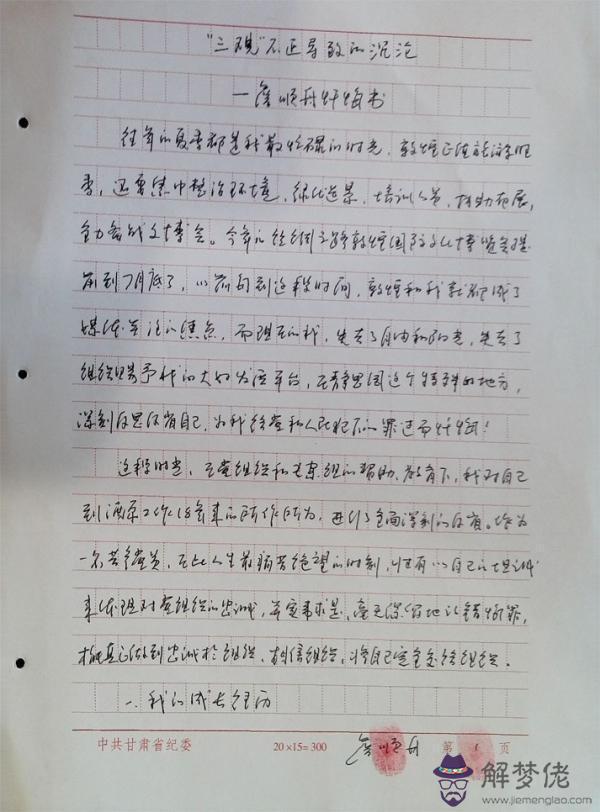 “三观”不正导致的沉沦
—詹顺舟忏悔书
往年的夏季都是我最忙碌的时光，敦煌正值旅游旺
季，还要集中整治环境，绿化造景，培训人员，
全力备战文博会。今年的丝绸之路敦煌国际文化博览会提
前到7月底了，以前的到这段时间，敦煌和我就都成了
媒体关注的焦点，而现在的我，失去了自由和阳光，失去了
组织赐予我的大好发展平台，在静思园这个特殊的地方，
深刻反思反省自己，为我给党和人民犯下的罪过而忏悔！
这段时光，在党组织和专案组的帮助、教育下，我对自己
到酒泉工作18年来的所作所为，进行了全面深刻的反省。作为
一名共产党员，在此人生最痛苦绝望的时刻，惟有以自己的坦诚
来体现对党组织的忠诚，实事求是，毫无保留地认错悔罪，
真正做到忠诚于组织、相信组织，将自己完全交给组织。
一、我的成长经历
中共甘肃省纪委
20×15=300
詹顺舟
第 1 页
解梦佬
www.jiemenglao.com